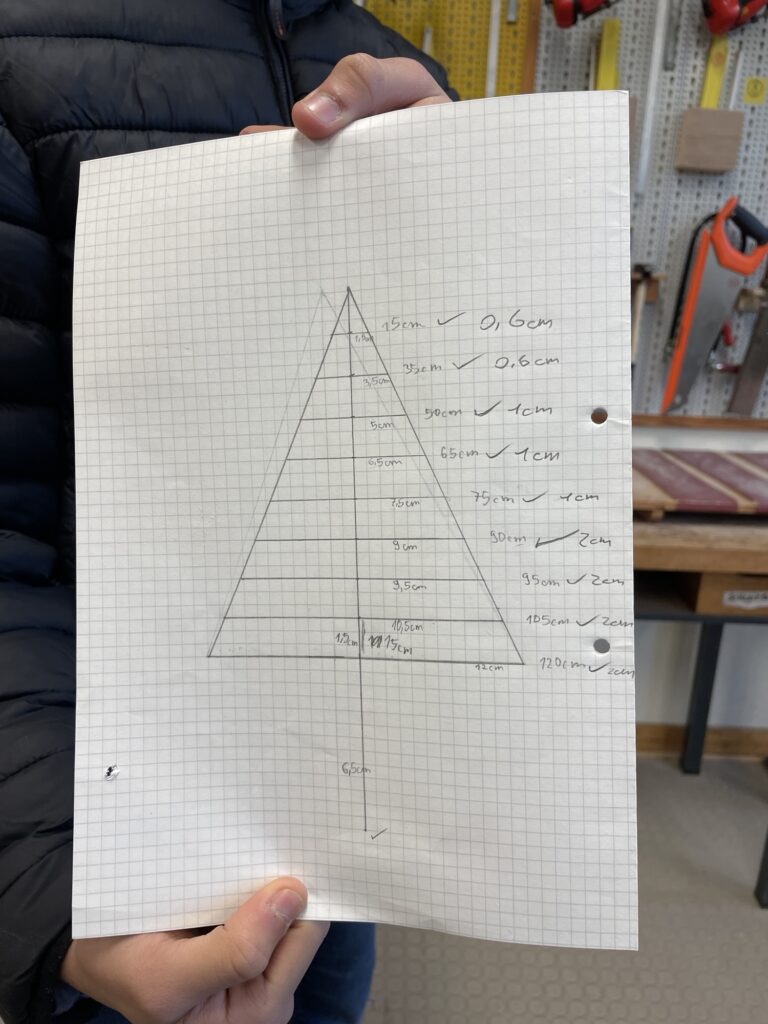 15cm ✓ 0,6cm
1,5cm
35cm ✓ 0,6cm
3,5cm
50cm ✓ 1cm
5cm
65cm ✓ 1cm
6,5cm
75cm ✓ 1cm
7,5cm
90cm ✓ 2cm
9cm
95cm ✓ 2cm
9,5cm
105cm ✓ 2cm
10,5cm
1,5cm 15cm
120cm ✓ 2cm
12cm
6,5cm
✓